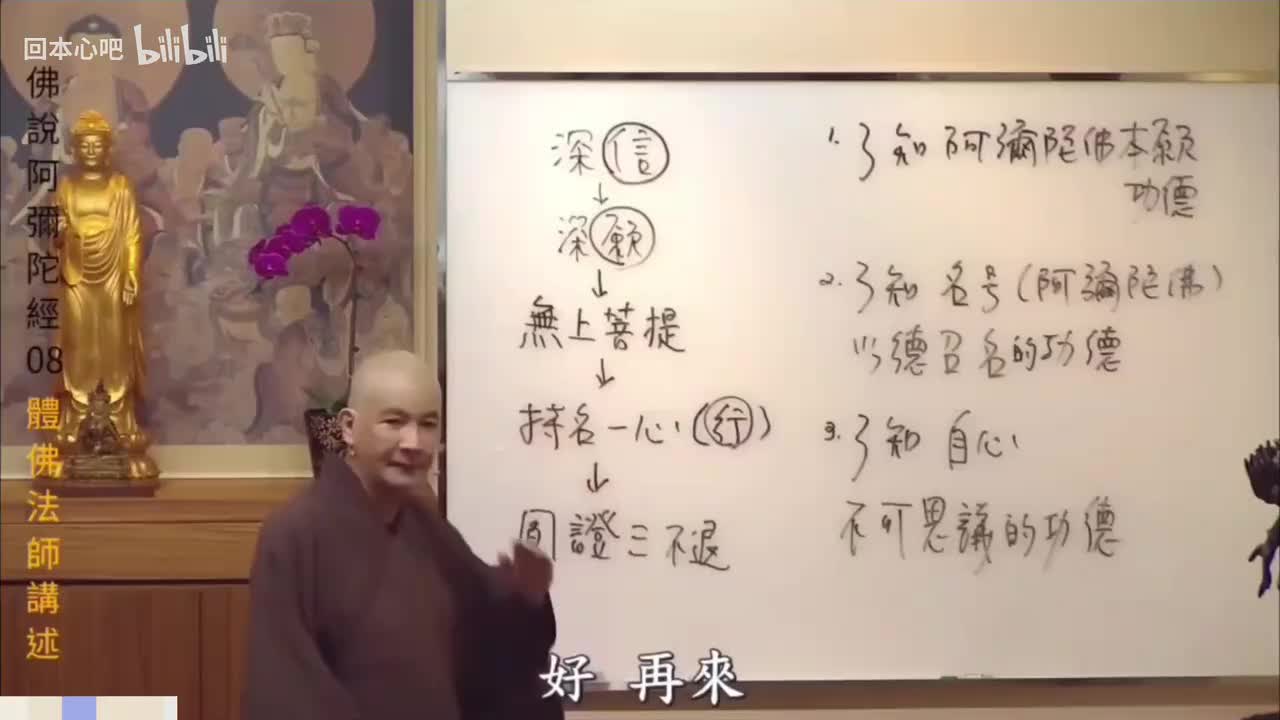 回本心吧 bilibili
佛說阿彌陀經08 體佛法師講述
深信
↓
深願
↓
無上菩提
↓
持名一心(行)
↓
圓證三不退
1.了知阿彌陀佛本願
功德
2.了知名号(阿彌陀佛)
以德召名的功德
3.了知自心
不可思議的功德
好 再來